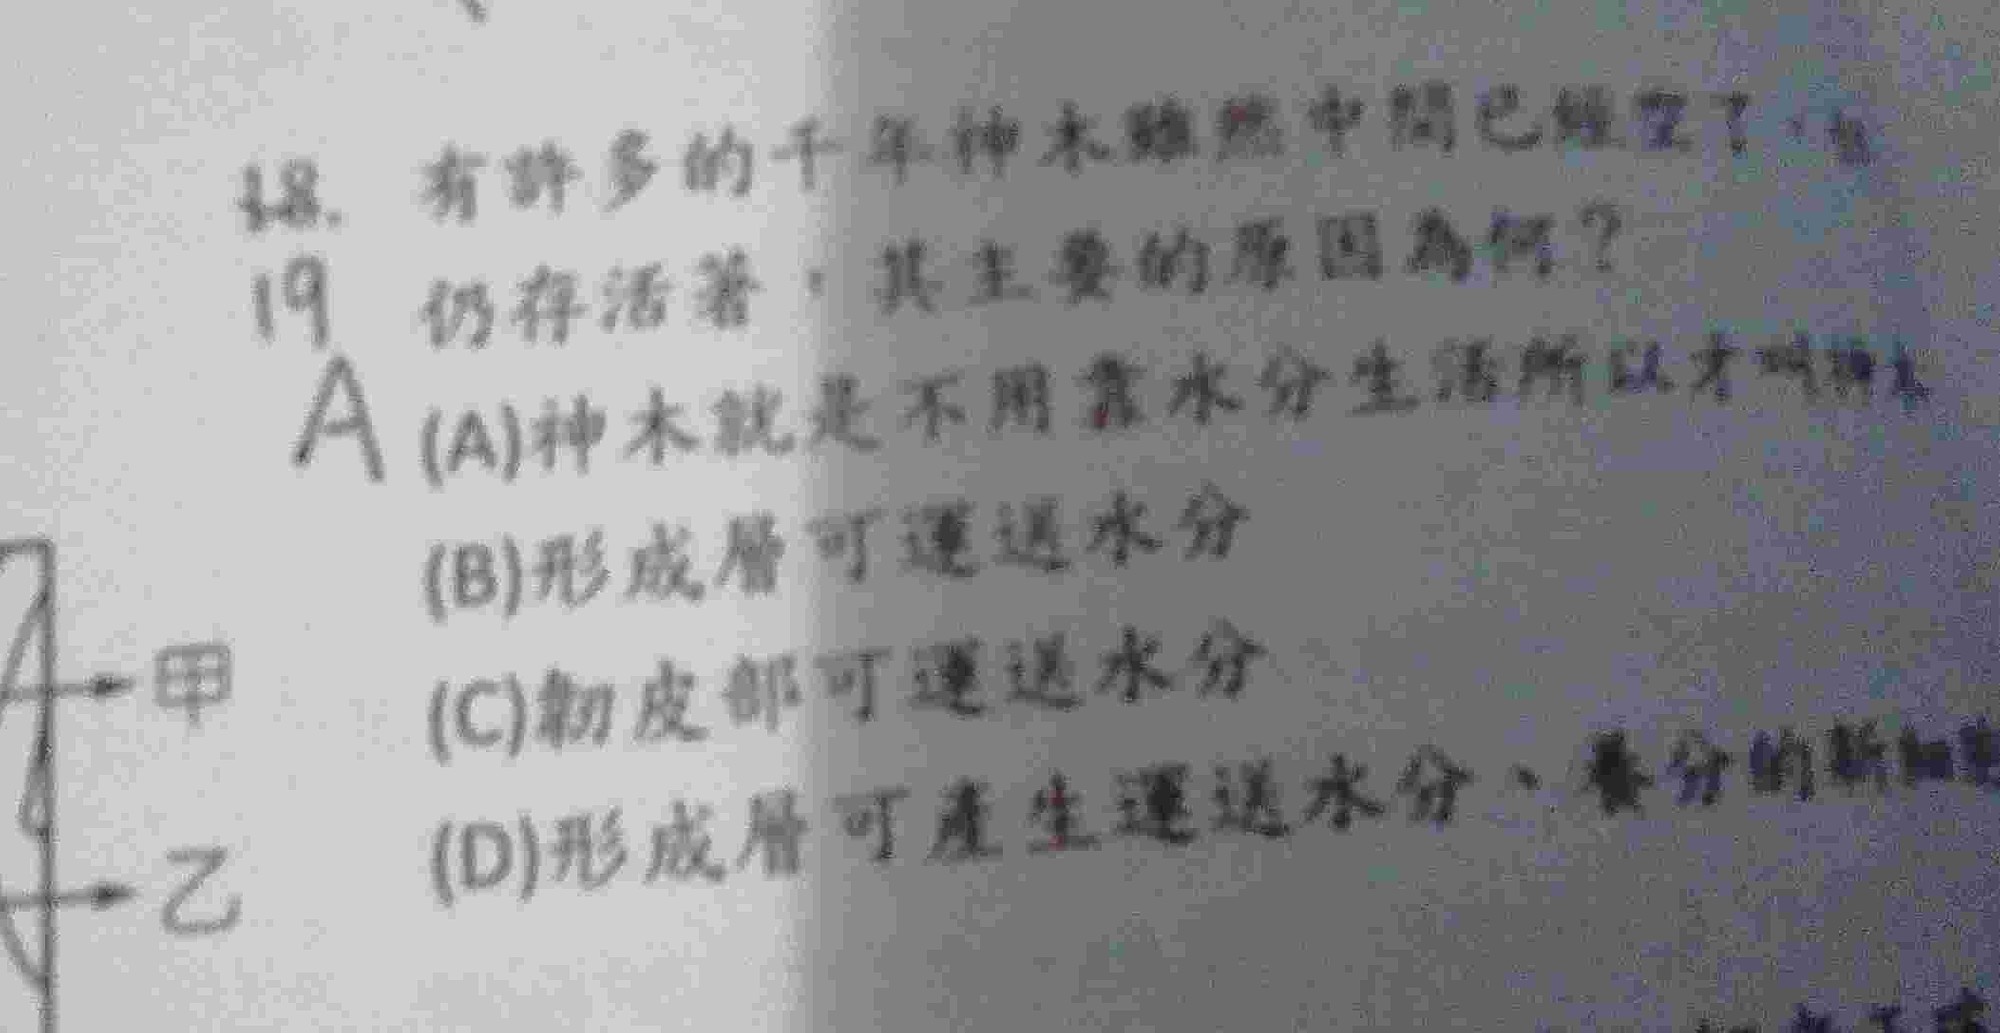 18. 有許多的千年神木雖然中間已經空了，但
19 仍存活著，其主要的原因為何？
A (A)神木就是不用靠水分生活所以才叫神木
(B)形成層可運送水分
(C)韌皮部可運送水分
(D)形成層可產生運送水分、養分的新細
甲
乙